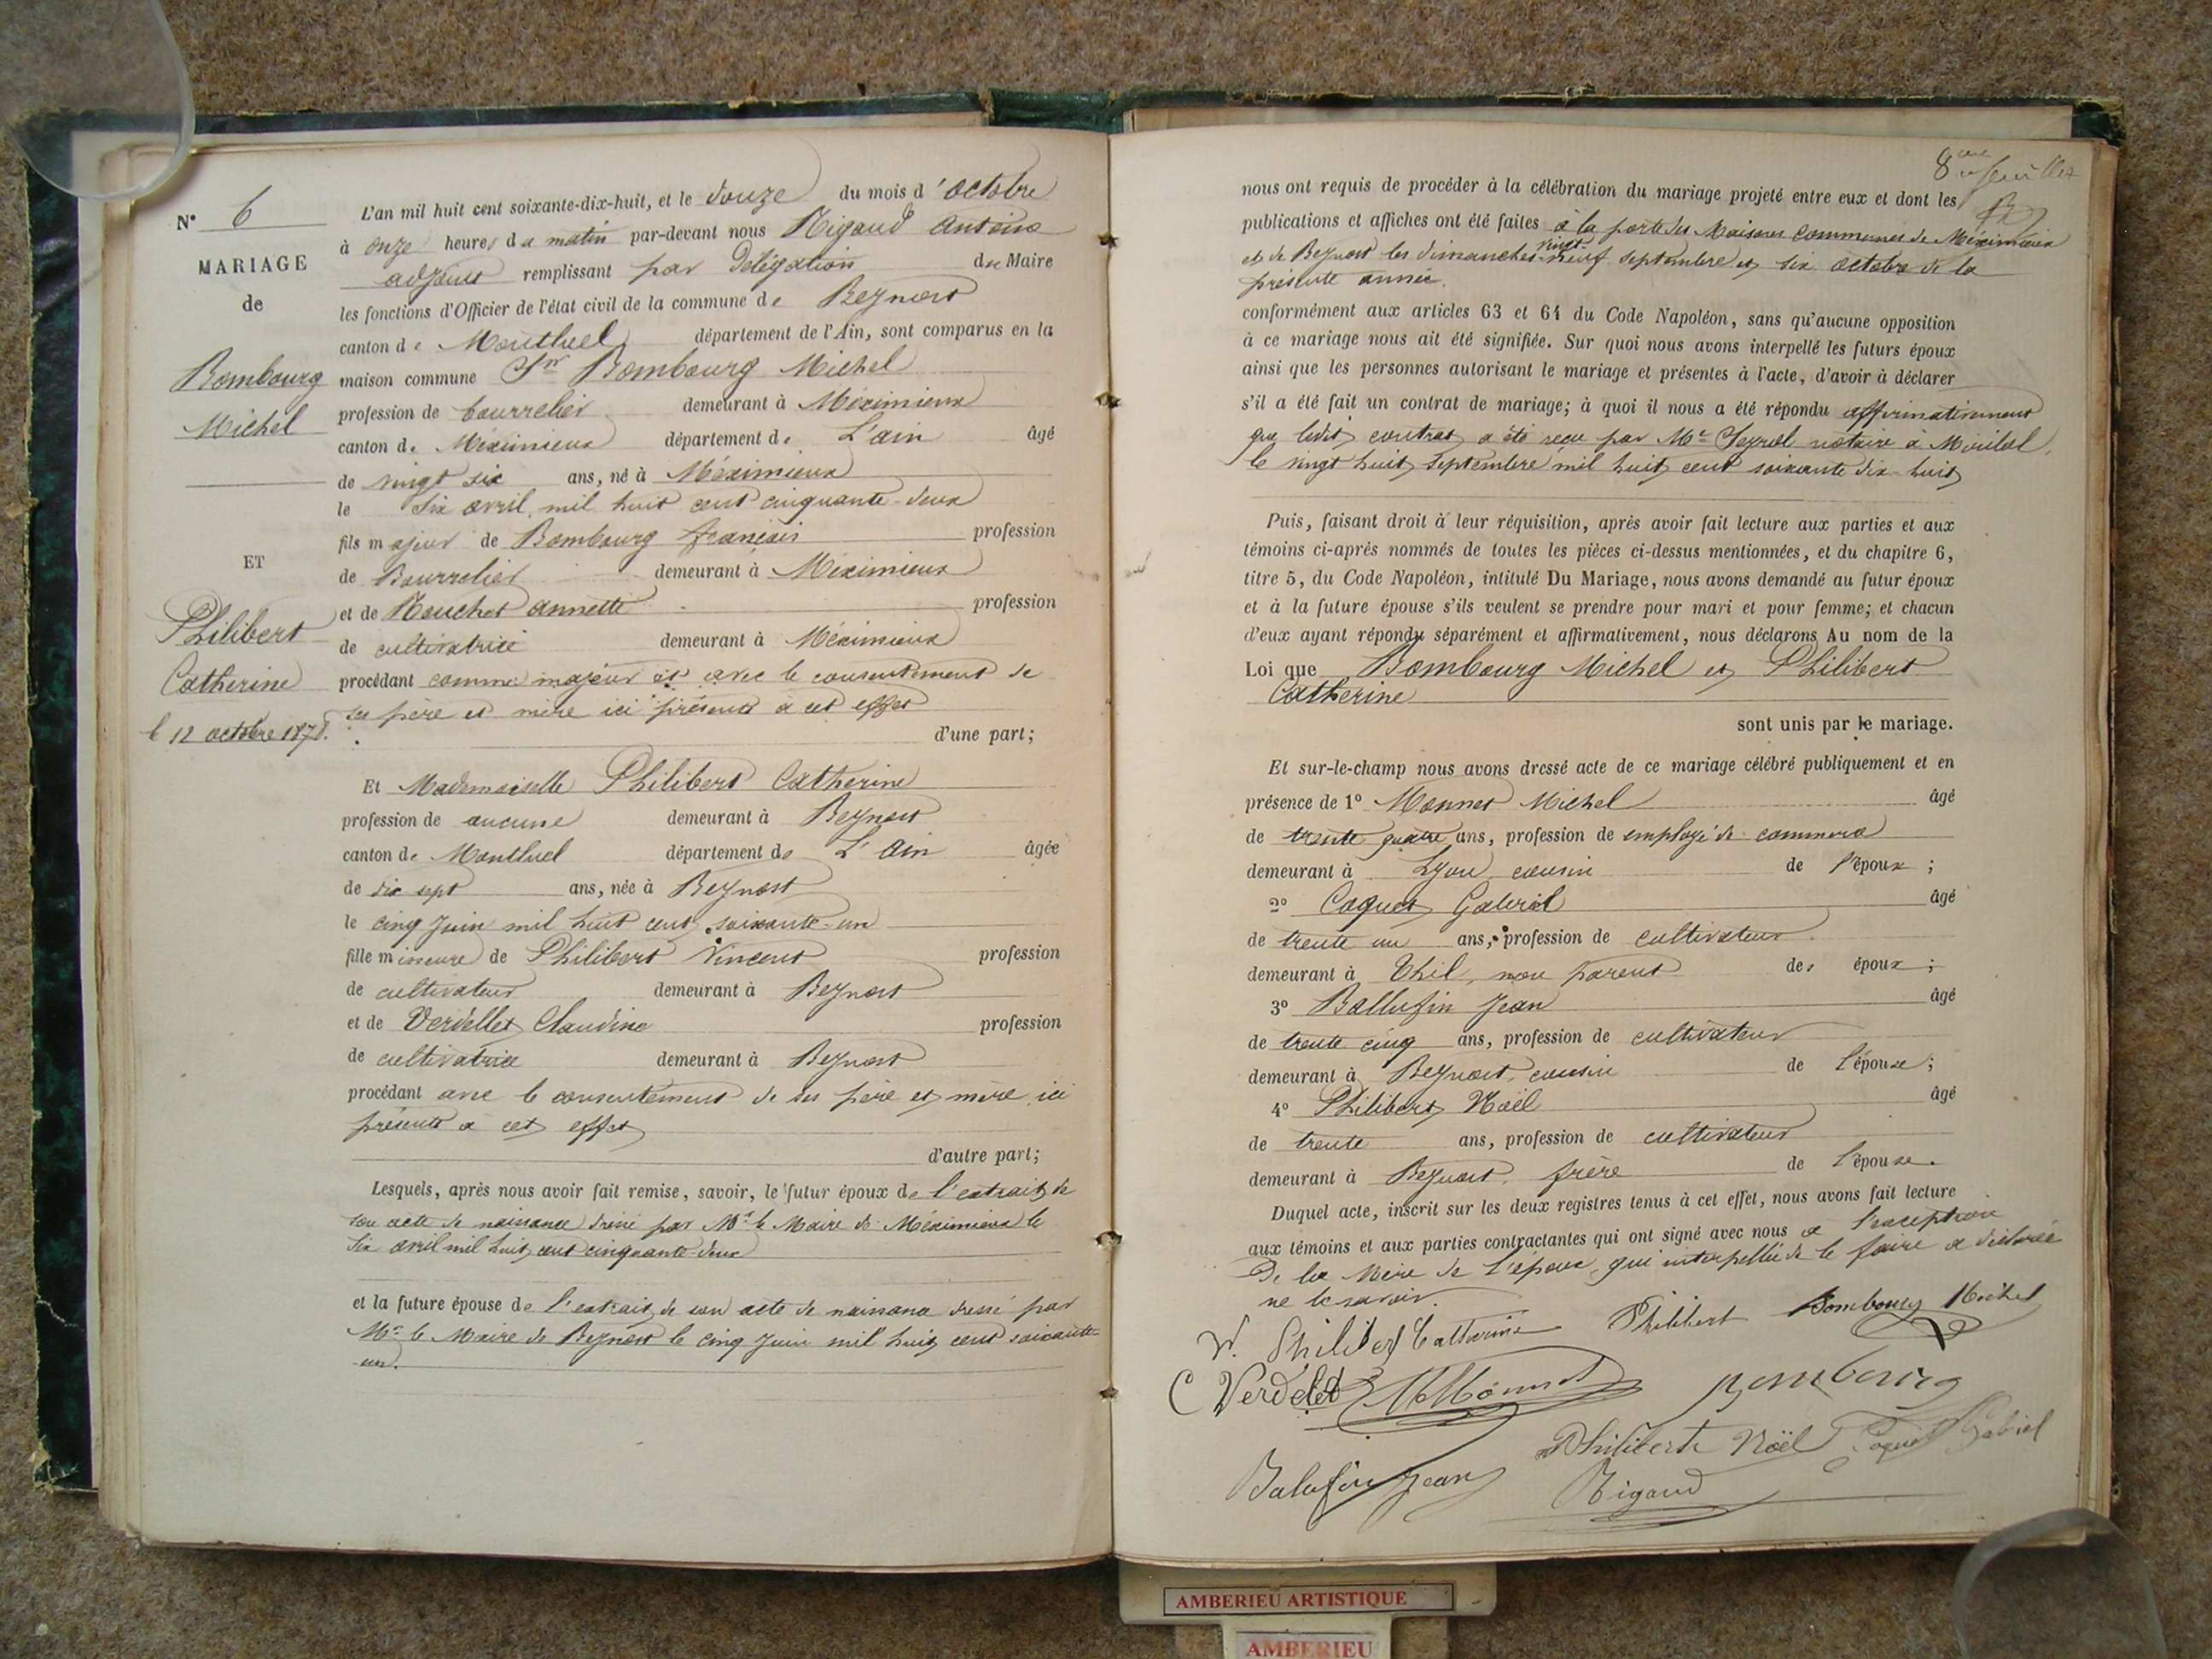 N° 6
MARIAGE
de
Bombourg
Michel
ET
Philibert
Catherine
le 12 octobre 1878.
L'an mil huit cent soixante-dix-huit, et le douze du mois d'octobre
à onze heures du matin par-devant nous Rigaud Antoine
adjoint remplissant par délégation du Maire
les fonctions d'Officier de l'état civil de la commune de Beynost
canton de Montluel département de l'Ain, sont comparus en la
maison commune Sr Bombourg Michel
profession de bourrelier demeurant à Méximieux
canton de Méximieux département de L'ain âgé
de vingt six ans, né à Méximieux
le six avril mil huit cent cinquante-deux
fils majeur de Bombourg françois profession
de Bourrelier demeurant à Méximieux
et de annette profession
de cultivatrice demeurant à Méximieux
procédant comme majeur et avec le consentement de
ses père et mère ici présents à cet effet
d'une part;
Et Mademoiselle Philibert Catherine
profession de aucune demeurant à Beynost
canton de Montluel département de L'Ain âgée
de dix sept ans, née à Beynost
le cinq juin mil huit cent soixante-un
fille mineure de Philibert Vincent profession
de cultivateur demeurant à Beynost
et de Verdellet Claudine profession
de cultivatrice demeurant à Beynost
procédant avec le consentement de ses père et mère ici
présents à cet effet
d'autre part;
Lesquels, après nous avoir fait remise, savoir, le futur époux de l'extrait de
son acte de naissance dressé par Mr le Maire de Méximieux le
six avril mil huit cent cinquante deux
et la future épouse de l'extrait de son acte de naissance dressé par
Mr le Maire de Beynost le cinq juin mil huit cent soixante-
un.
8eme feuillet
nous ont requis de procéder à la célébration du mariage projeté entre eux et dont les
publications et affiches ont été faites à la porte des Maisons Communes de Méximieux
et de Beynost les dimanches vingt-neuf septembre et six octobre de la
présente année.
conformément aux articles 63 et 64 du Code Napoléon, sans qu'aucune opposition
à ce mariage nous ait été signifiée. Sur quoi nous avons interpellé les futurs époux
ainsi que les personnes autorisant le mariage et présentes à l'acte, d'avoir à déclarer
s'il a été fait un contrat de mariage; à quoi il nous a été répondu affirmativement
que ledit contrat a été reçu par Me notaire à
le vingt huit septembre mil huit cent soixante dix-huit
Puis, faisant droit à leur réquisition, après avoir fait lecture aux parties et aux
témoins ci-après nommés de toutes les pièces ci-dessus mentionnées, et du chapitre 6,
titre 5, du Code Napoléon, intitulé Du Mariage, nous avons demandé au futur époux
et à la future épouse s'ils veulent se prendre pour mari et pour femme; et chacun
d'eux ayant répondu séparément et affirmativement, nous déclarons Au nom de la
Loi que Bombourg Michel et Philibert
Catherine
sont unis par le mariage.
Et sur-le-champ nous avons dressé acte de ce mariage célébré publiquement et en
présence de 1° Monnet Michel âgé
de trente quatre ans, profession de employé de commerce
demeurant à Lyon, cousin de l'époux ;
2° Coquet Gabriel âgé
de trente un ans, profession de cultivateur
demeurant à Thil, non parent des époux ;
3° Ballufin Jean âgé
de trente cinq ans, profession de cultivateur
demeurant à Beynost, cousin de l'épouse ;
4° Philibert Noël âgé
de trente ans, profession de cultivateur
demeurant à Beynost, frère de l'épouse.
Duquel acte, inscrit sur les deux registres tenus à cet effet, nous avons fait lecture
aux témoins et aux parties contractantes qui ont signé avec nous à l'exception
De la Mère de l'époux, qui interpellée de le faire a déclaré
ne le savoir.
V. Philibert Catherine Philibert Bombourg Michel
C Verdelet M Monnet Bombourg
Philibert Noël Coquet Gabriel
Balufin Jean Rigaud
AMBERIEU ARTISTIQUE
AMBERIEU